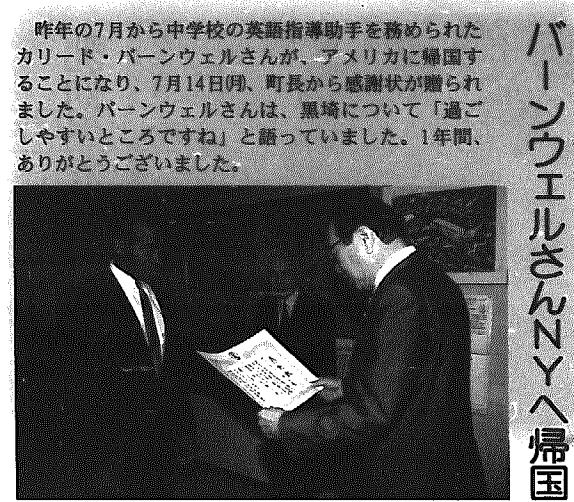 バーンウェルさんNYへ帰国
昨年の7月から中学校の英語指導助手を務められた
カリード・バーンウェルさんが、アメリカに帰国す
ることになり、7月14日㈪、町長から感謝状が贈られ
ました。バーンウェルさんは、黒埼について「過ご
しやすいところですね」と語っていました。1年間、
ありがとうございました。